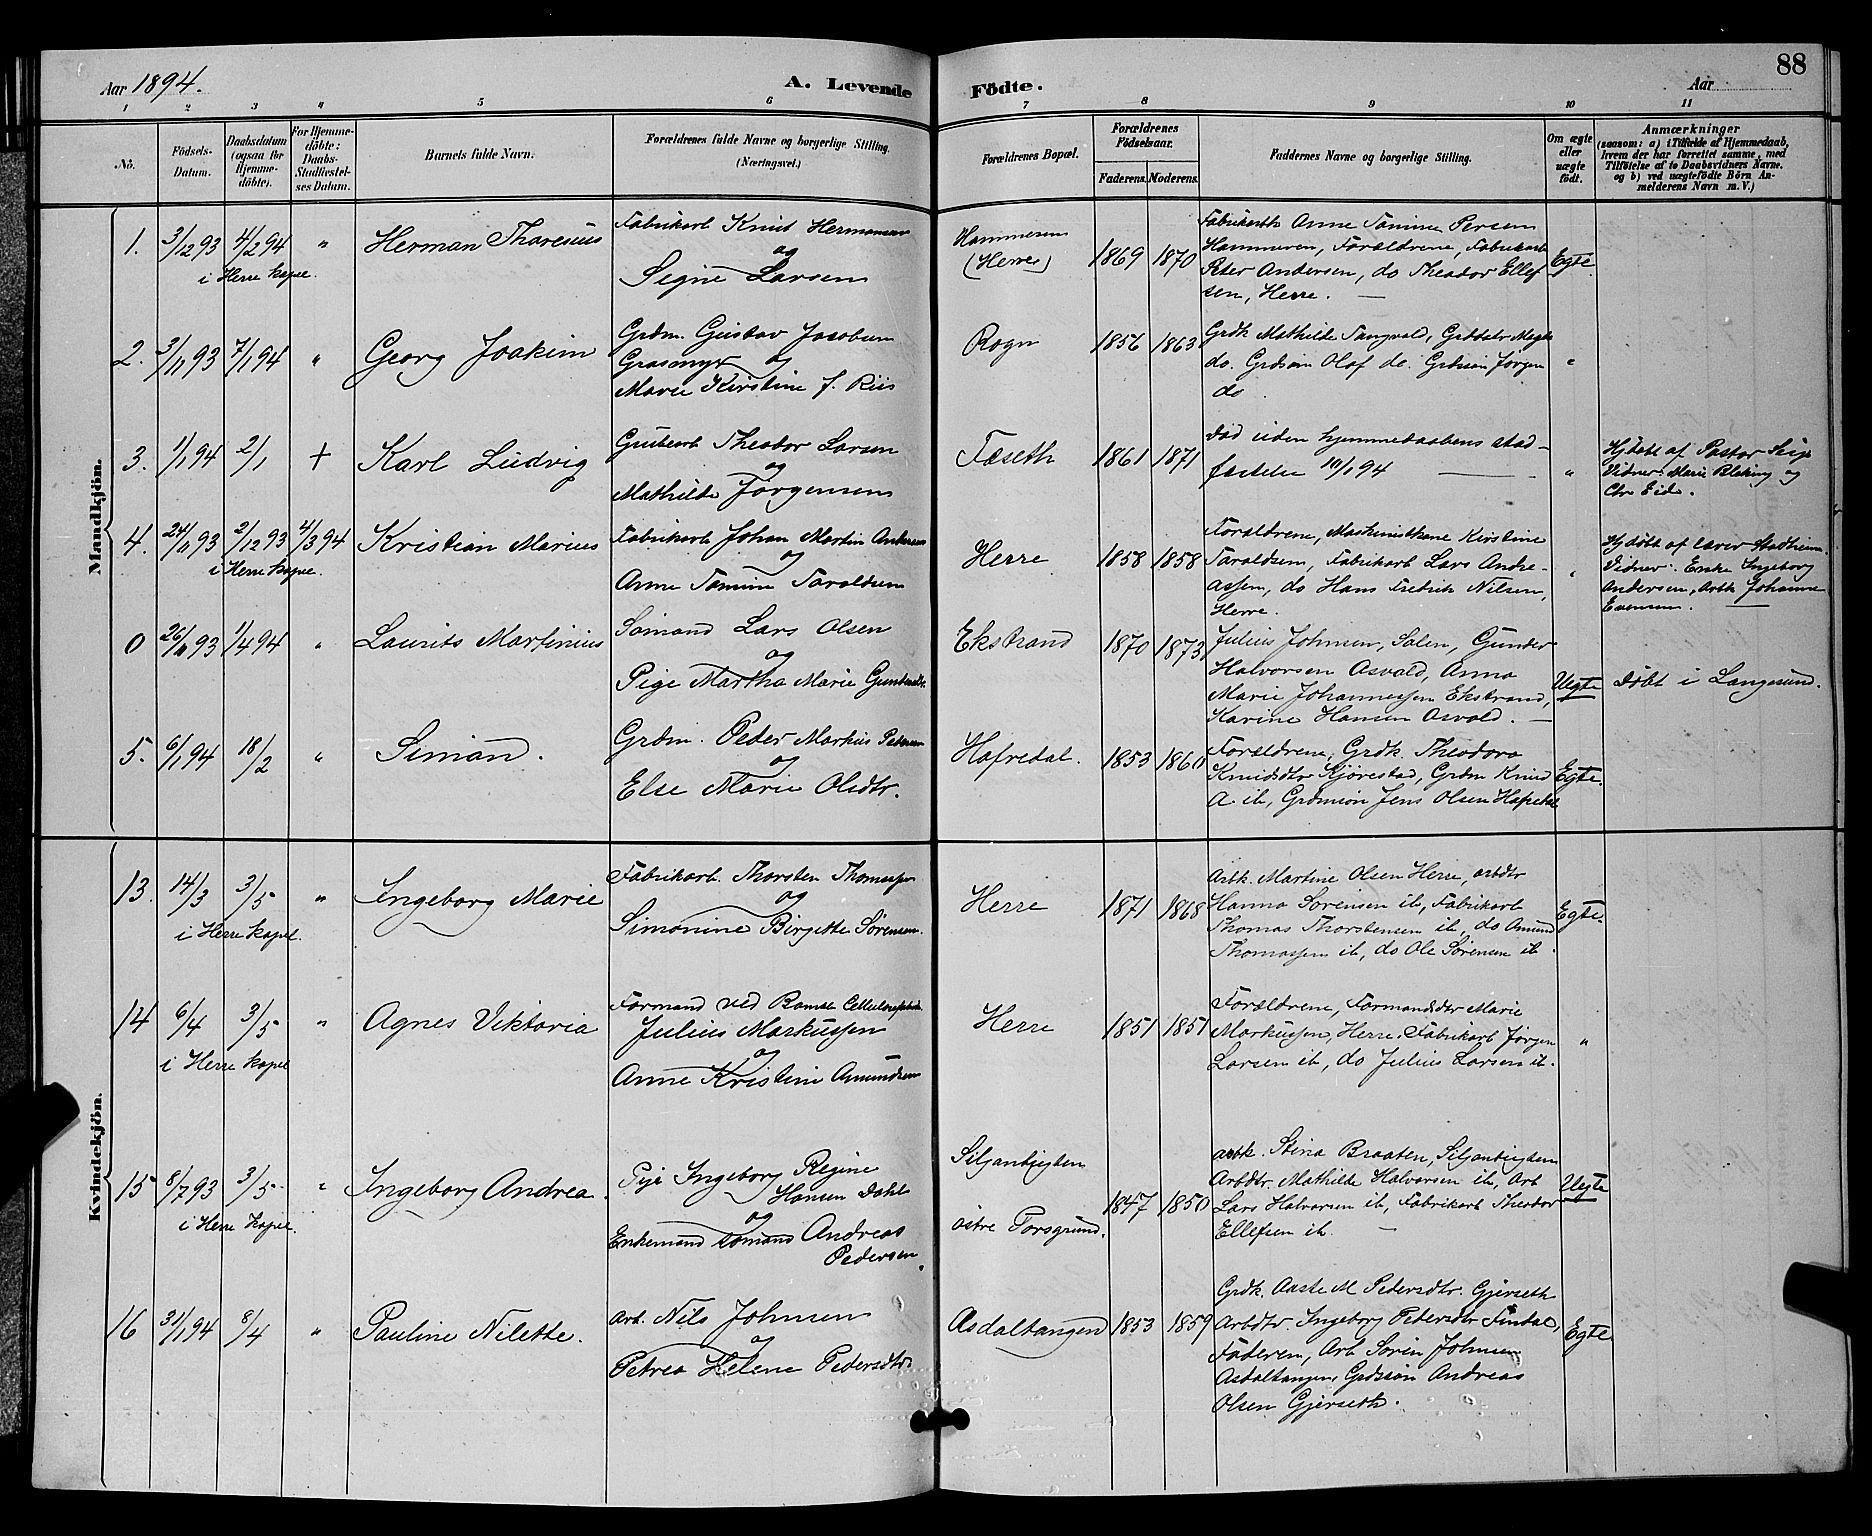 88
Aar 1894.
A. Levende Födte.
Aar
1 2 3 4 5 6 7 8 9 10 11
No.
Födsels-
Datum.
Daabsdatum
(ogsaa for
Hjemme-
döbte).
For Hjemme-
döbte:
Daabs-
Stadfæstel-
ses Datum.
Barnets fulde Navn.
Forældrenes fulde Navne og borgerlige Stilling.
(Næringsvei.)
Forældrenes Bopæl.
Forældrenes
Födselsaar.
Faderens. Moderens.
Faddernes Navne og borgerlige Stilling.
Om ægte
eller
uægte
födt.
Anmærkninger
(saasom: a) i Tilfælde af Hjemmedaab,
hvem der har forrettet samme, med
Tilföielse af to Daabsvidners Navne.
og b) ved uægtefödte Börn An-
melderens Navn m. V.)
Mandkjön.
1. 3/12 93 4/2 94 "
i Herre kapel.
Herman Tharesius
Fabrikarb Knud Hermansen
og
Signe Larsen
Hammeren
(Herre)
1869 1870
Fabrikarbk Anne Tomine Persen
Hammeren, Forældrene, Fabrikarb
Peter Andersen, do Theodor Ellef
sen, Herre.
Egte.
2. 3/11 93 7/1 94 "
Georg Joakim
Grdm. Gustav Jacobsen
og
Marie Kirstine f. Riis
Rogn
1856 1863
Grdk Mathilde Tangvald, Grddatr
do. Grdsøn Olaf do. Grdsøn Jørgen
do.
"
3. 1/1 94 2/1 +
Karl Ludvig
Theodor Larsen
og
Mathilde Jørgensen
Tæseth
1861 1871
Død uden hjemmedaabens stad-
fæstelse 10/1 94
"
Hjdøbt af Pastor
Vidner: Marie og
Chr Eid.
4. 24/11 93 2/12 93 4/3 94
i Herre kapel.
Kristian Marius
Fabrikarb Johan Martin Andersen
og
Anne Tomine Taraldsen
Herre
1858 1858
Forældrene, Maskinistkone Kirstine
Taraldsen, Fabrikarb Lars Andre-
assen, do Hans Fredrik Nilsen,
Herre.
"
Hjdøbt af lærer Stadheim.
Vidner: Enke Ingeborg
Andersen, Arbk Johanne
Evensen.
0 26/11 93 1/4 94 "
Laurits Martinius
Sømand Lars Olsen
og
Pige Martha Marie Gundersdtr.
Ekstrand
1870 1873
Julius Johnsen, Salen, Gunder
Halvorsen Asvald, Anna
Marie Johannessen Ekstrand,
Karine Hansen Asvald.
Uegte
Døbt i Langesund.
5. 6/1 94 18/2 "
Simon.
Grdm. Peder Markus Petersen
og
Else Marie Olsdtr.
Hafredal.
1853 1860
Forældrene, Grdk. Theodora
Knudsdtr Kjørestad, Grdm Knud
A. ib, Grdmsøn Jens Olsen Hafredal
Egte.
Kvindekjön.
13. 14/3 3/5 "
i Herre kapel.
Ingeborg Marie
Fabrikarb. Thorsten Thomassen
og
Simonine Birgitte Sørensen.
Herre
1871 1868
Arbk. Martine Olsen Herre, arbdtr
Hanna Sørensen ib, Fabrikarb
Thomas Thorstensen ib, do Amund
Thomassen ib, do Ole Sørensen ib.
Egte.
14 6/4 3/5 "
i Herre kapel
Agnes Viktoria
Formand ved Bamble Cellulosefabrik
Julius Markussen
og
Anne Kristine Amundsen
Herre
1851 1851
Forældrene, Formandsdtr Marie
Markussen, Herre. Fabrikarb Jørgen
Larsen ib, do Julius Larsen ib.
"
15 8/7 93 3/5 "
i Herre kapel.
Ingeborg Andrea.
Pige Ingeborg Regine
Hansen Dahl
og
Enkemand sømand Andreas
Pedersen.
Siljanbygden
østre Porsgrund.
1847 1850
arbk. Stina Braaten, Siljanbygden
Arbdtr. Mathilde Halvorsen ib, Arb
Lars Halvorsen ib, Fabrikarb Theodor
Ellefsen ib.
Uegte
16 31/1 94 8/4 "
Pauline Nilette.
Arb. Nils Johnsen
og
Petrea Helene Pedersdtr.
Asdaltangen
1853 1859
Grdk. Aaste M Pedersdtr. Gjerseth
Arbdtr. Ingeborg Pedersdtr Findal,
Faderen, Arb Søren Johnsen
Asdaltangen, Grdssøn Andreas
Olsen Gjerseth.
Egte